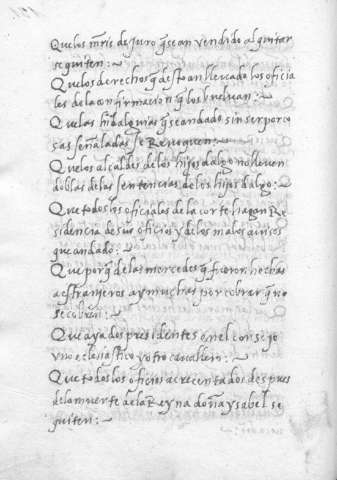 Que los mrs de Juro q̃ sean vendido al quitar
se quiten:~
Que los derechos q̃ destoan llevado los oficia
les de la confirmacion q̃ los buelvan:~
Que las hidalguias q̃ sean dado sin ser por co
sas señaladas se Revoquen:~
Que los alcaldes de los hijos dalgo no lleven
doblas de las sentencias de los hijos dalgo:~
Que todos los oficiales de la corte hagan Re
sidencia de sus oficios y de los maleficios
que an dado:~
Que porq̃ de las mercedes q̃ fueron hechas
a estranjeros ay muchas por cobrar q̃ no
se cobren:~
Que aya dos presidentes en el consejo
vno eclesiastico y otro cavallero:~
Que todos los oficios acrecentados despues
de la muerte de la Reyna doña ysabel se
quiten:~